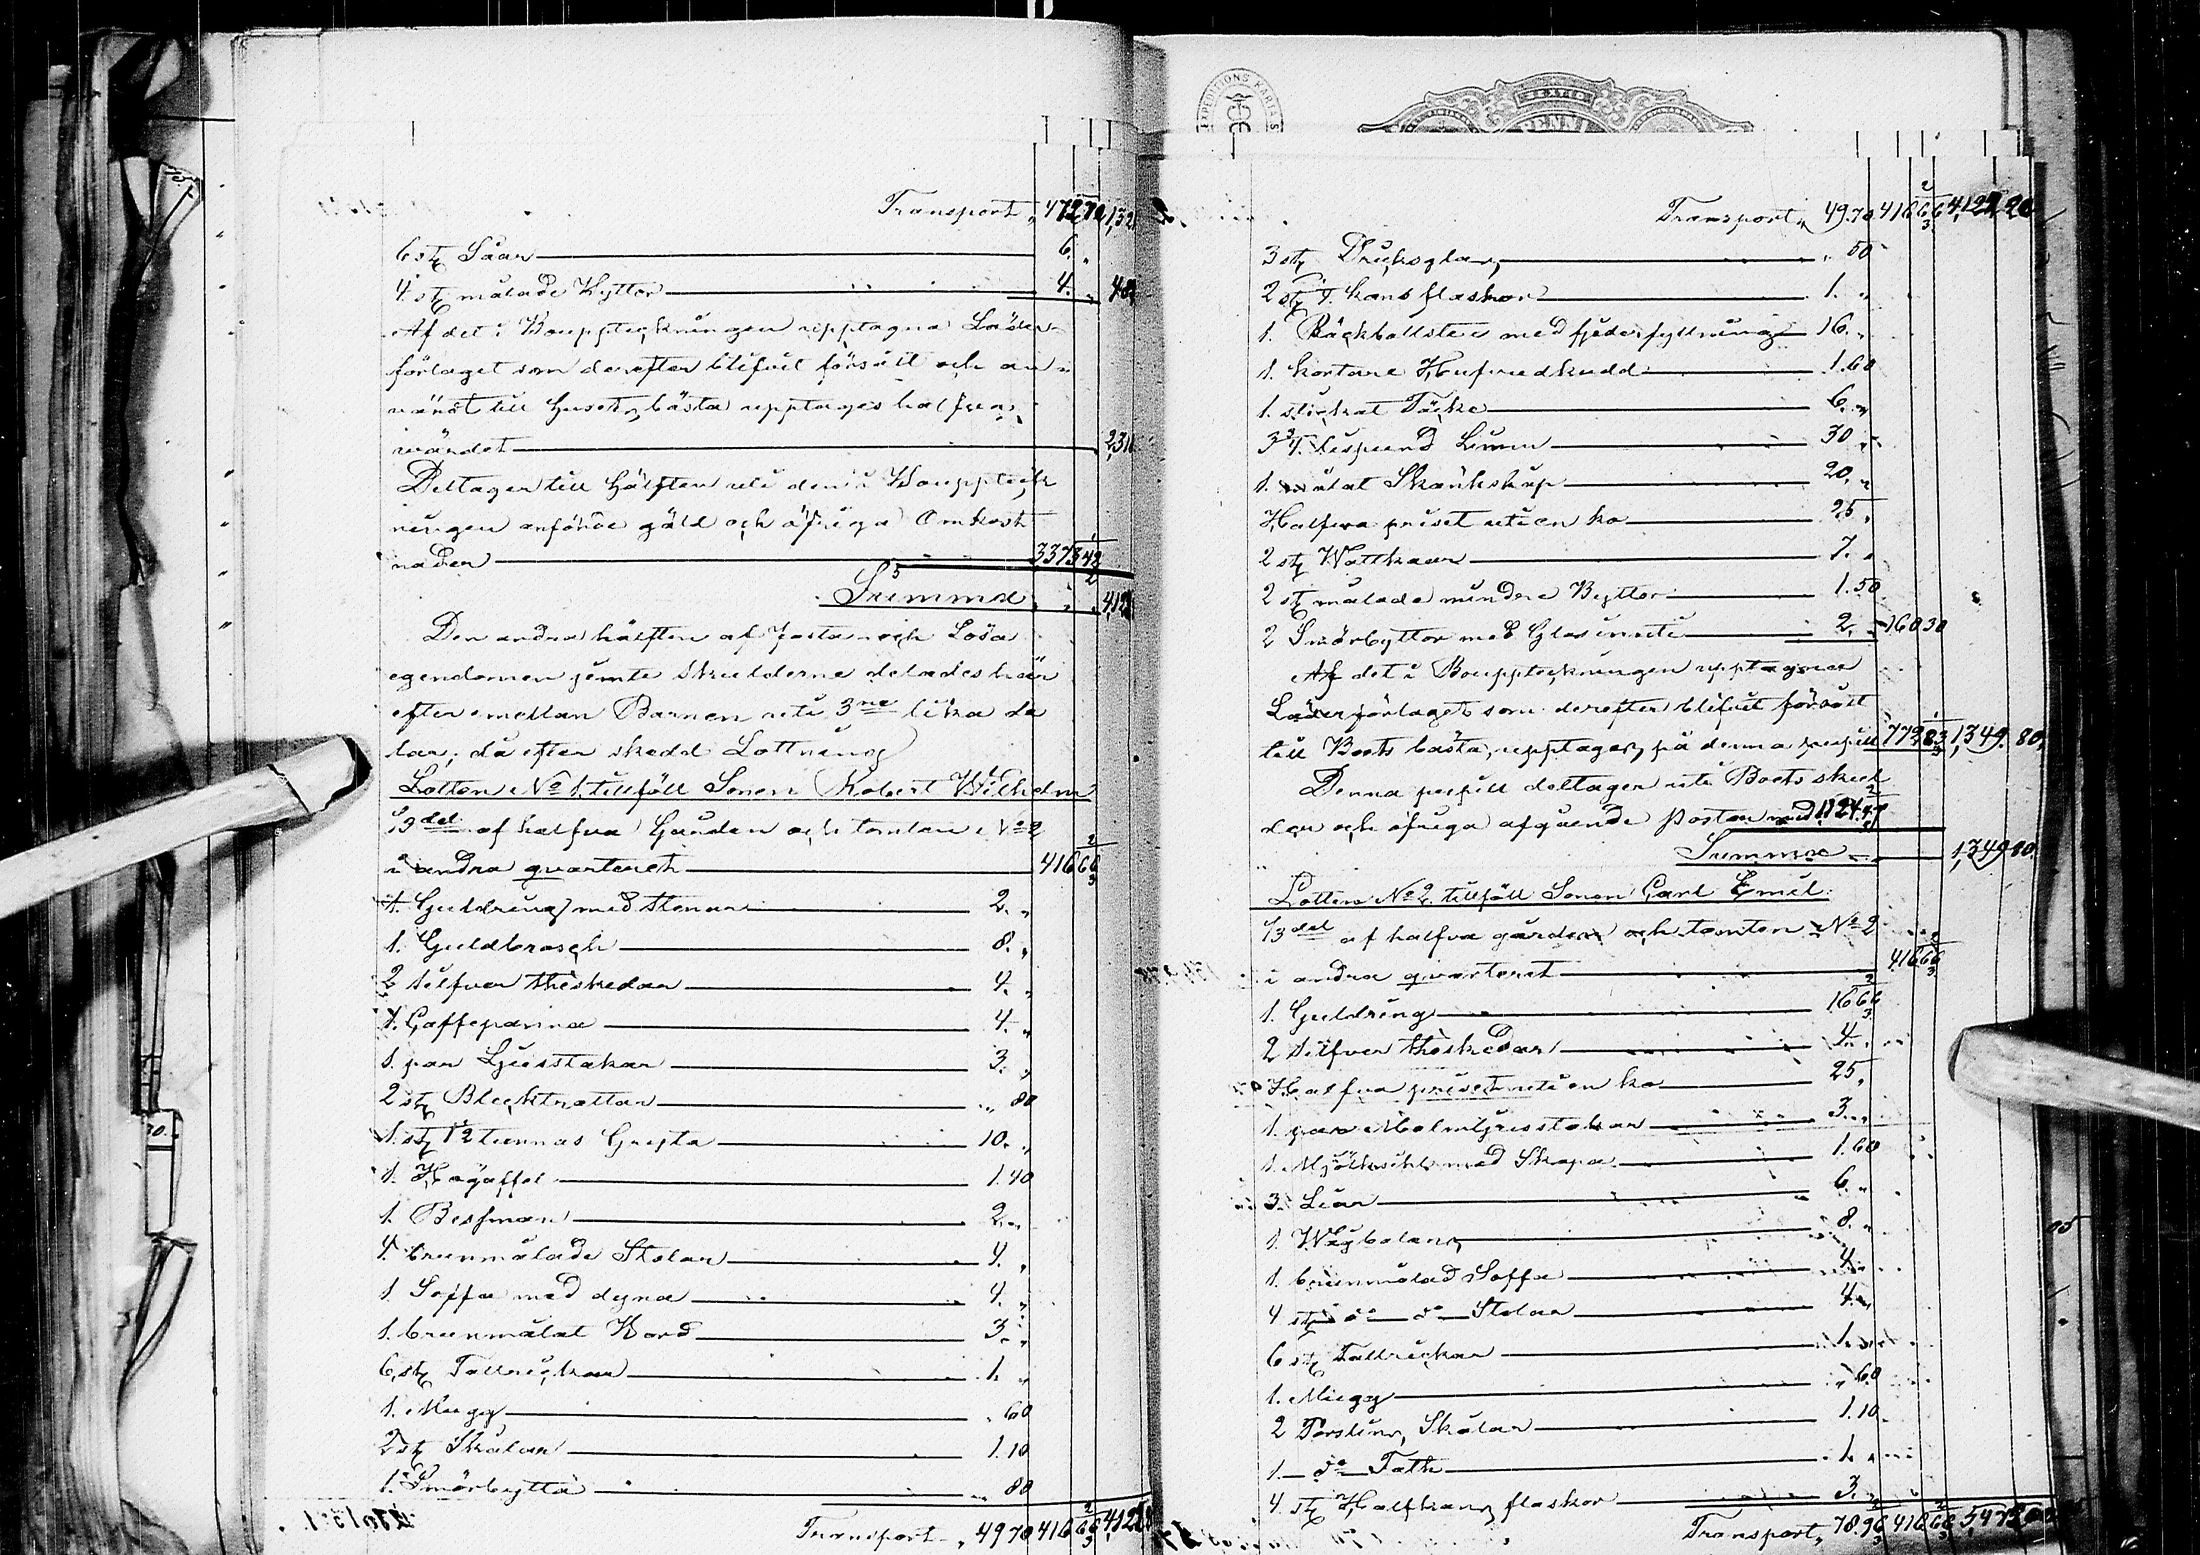 Transport „ 472 70 132
6 stg Såar 6. „
4. stg målade Byttor 4. „ 48
Af det i Bouppteckningen upptagna Läder-
förlaget som derefter blifvit försålt och an-
vändt till husets bästa upptages halfva
värdet 231
Deltager till hälften uti den i Bouppteck
ningen anförde gäld och öfriga Omkost
nader 3373 42
Summa „ „ „ 412
Den andra hälften af fasta och Lösa
egendomen jemte skulderne delades här
efter emellan Barnen uti 3ne lika de
lar; då efter skedd Lottning
Lotten No 1. tillföll Sonen Robert Wilhelm
1/3 del af halfva Gården och tomten No 2
i andra qvarteret 416 66 2/3
1. Guldring med stenar 2. „
1. Guldbrosch 8. „
2 silfver theskedar 4. „
1. Caffepanna 4. „
1. par Ljusstakar 3. „
2 stg Blecktrattar „ 80
1. stg 1/2 tunnas Gryta 10. „
1. Högaffel 1.40
1. Besman 2. „
4. brunmålade Stolar 4. „
1 Soffa med dyna 4. „
1. brunmålat Bord 3. „
6 stg Tallrickar 1. „
1. Mugg „ 60
2 stg Skålar 1.10
1. Smörbytta „ 80
Transport „ 49 70 416 66 2/3 412
Transport „ 49.70 416 66 2/3 4,122 20
3 stg Dricksglas „ 50
2 stg 1/4 kans flaskor 1. „
1. Bäckbolster med fjederfyllning 16. „
1. kortare Hufvudkudd 1.60
1. stickat Täcke 6. „
3 3/4 lispund Linn 30 „
1. målat Skänkskåp 20. „
Halfva priset uti en ko 25 „
2 stg Wattkaar 7. „
2 stg målade mindre Byttor 1.50
2 Smörbyttor med Glas inuti 2. „ 160 30
Af det i Bouppteckningen upptagna
Läderförlaget som derefter blifvit försålt
till Boets bästa, upptages på denna perssill 772 83 1/3 1,349. 80.
Denna perssill deltager uti Boets skul
der och öfriga afgående Posten med 1124. 47
Summa 1,349 80.
Lotten No 2. tillföll Sonen Carl Emil
1/3 del af halfva gården och tomten No 2
i andra qvarteret 416 66 2/3
1. Guldring 16 66 2/3
2 silfver theskedar 4. „
Halfva priset uti en ko 25 „
1. par Malmljusstakar 3. „
1. Mjölksihl med Skopa 1.60
3. Liar 6 „
1. Wågbalans 8. „
1. brunmålad Soffa 4. „
4 stg do do Stolar 4. „
6 stg Tallrickar 1. „
1. Mugg „ 60
2 Porslins, Skålar 1.10
1. do Fath 1. „
4. stg Halfkans flaskor 3. „
Transport „ 78.96 2/3 416 66 2/3 5,472